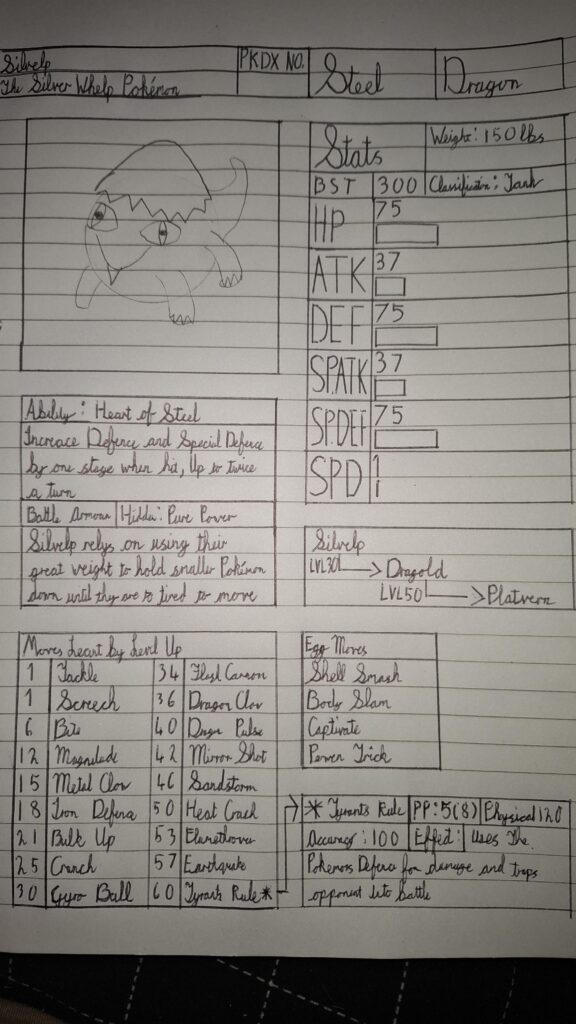 Silvelp
The Silver Whelp Pokémon
PKDX NO.
Steel
Dragon
Stats
Weight: 150 lbs
BST 300 Classification: Tank
HP 75
ATK 37
DEF 75
SP.ATK 37
SP.DEF 75
SPD 1
Ability: Heart of Steel
Increace Defence and Special Defence
by one stage when hit, Up to twice
a turn
Battle Armour Hidden: Pure Power
Silvelp relys on using their
great weight to hold smaller Pokémon
down until they are to tired to move
Silvelp
LVL30 Dragold
LVL50 Platvern
Moves Learnt by Level Up
1 Tackle 34 Flash Cannon
1 Screech 36 Dragon Claw
6 Bite 40 Dragon Pulse
12 Magnitude 42 Mirror Shot
15 Metal Claw 46 Sandstorm
18 Iron Defence 50 Heat Crash
21 Bulk Up 53
25 Crunch 57 Earthquake
30 Gyro Ball 60 Tyrants Rule*
Egg Moves
Shell Smash
Body Slam
Captivate
Power Trick
* Tyrants Rule PP: 5(8) Physical 120
Accuracy: 100 Effect: Uses The
Pokemons Defence for damage and traps
opponent into battle